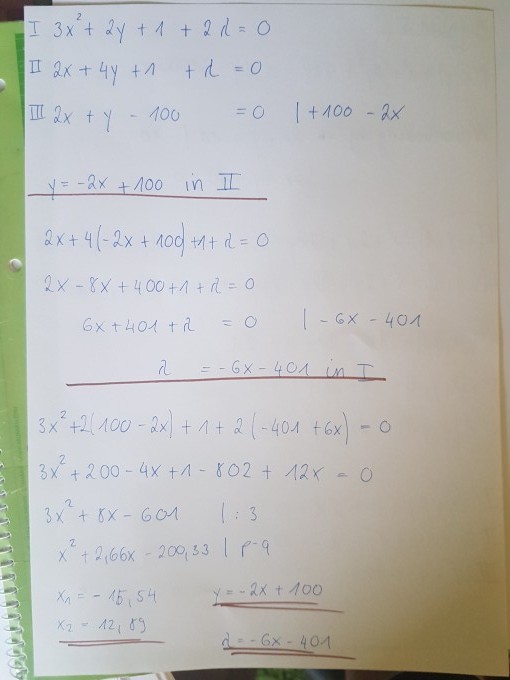 I 3x² + 2y + 1 + 2λ = 0
II 2x + 4y + 1 + λ = 0
III 2x + y - 100 = 0 | +100 - 2x
y = -2x + 100 in II
2x + 4(-2x + 100) + 1 + λ = 0
2x - 8x + 400 + 1 + λ = 0
6x + 401 + λ = 0 | - 6x - 401
λ = - 6x - 401 in I
3x² + 2(100 - 2x) + 1 + 2(-401 + 6x) = 0
3x² + 200 - 4x + 1 - 802 + 12x = 0
3x² + 8x - 601 | : 3
x² + 2,66x - 200,33 | p-q
x₁ = - 15,54 y = -2x + 100
x₂ = 12,89
λ = -6x - 401